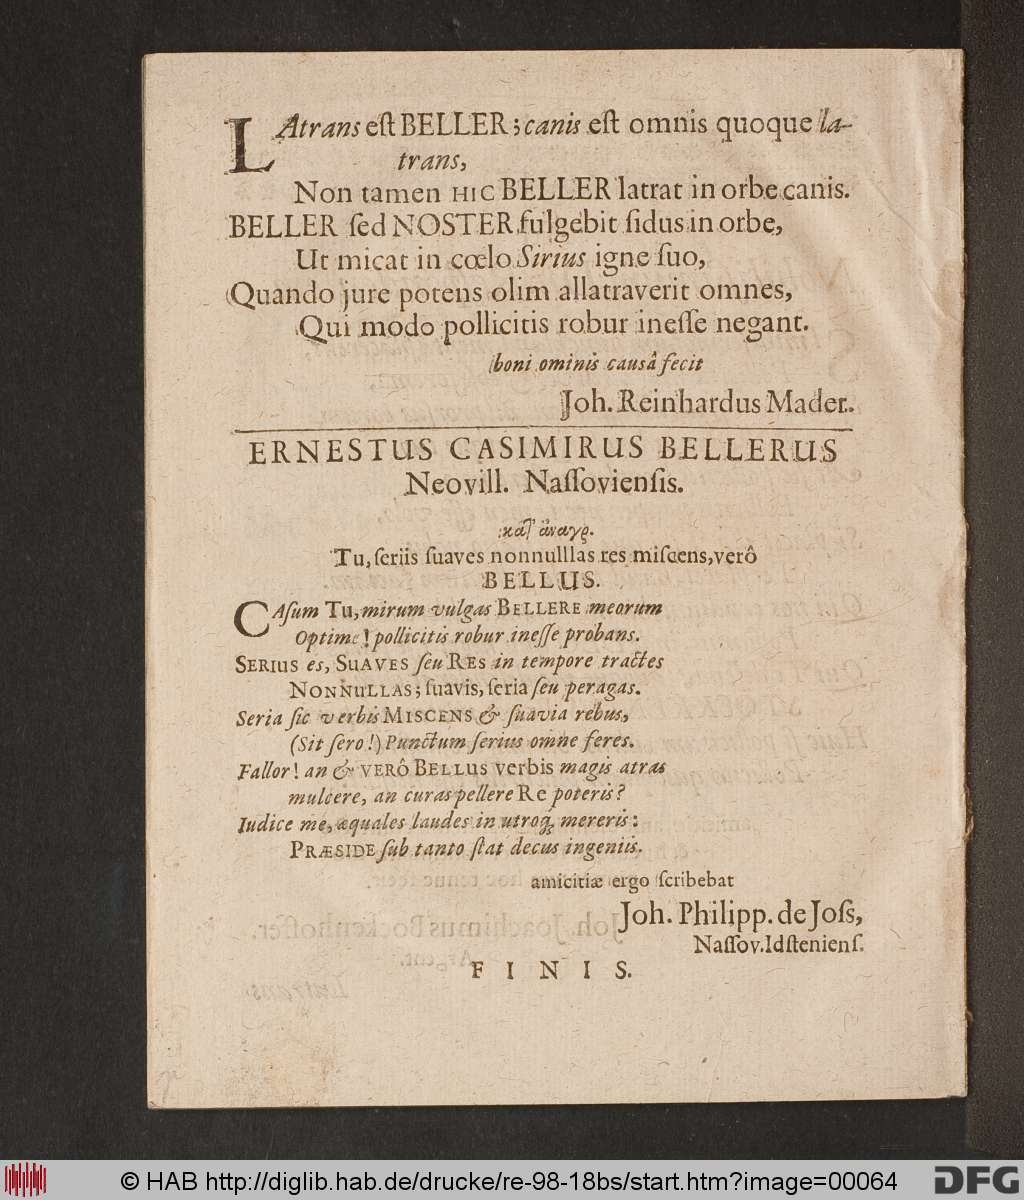 LAtrans eſt BELLER; canis eſt omnis quoque la-
trans,
Non tamen HIC BELLER latrat in orbe canis.
BELLER ſed NOSTER fulgebit ſidus in orbe,
Ut micat in cœlo Sirius igne ſuo,
Quando jure potens olim allatraverit omnes,
Qui modo pollicitis robur ineſſe negant.
boni ominis causâ fecit
Joh. Reinhardus Mader.
ERNESTUS CASIMIRUS BELLERUS
Neovill. Naſſovienſis.
κατ' ἀναγρ.
Tu, ſeriis ſuaves nonnulllas res miſcens, verô
BELLUS.
CAſum Tu, mirum vulgas BELLERE meorum
Optime! pollicitis robur ineſſe probans.
SERIUS es, SUAVES ſeu RES in tempore tractes
NONNULLAS; ſuavis, ſeria ſeu peragas.
Seria ſic verbis MISCENS & ſuavia rebus,
(Sit ſero!) Punctum ſerius omne feres.
Fallor! an & VERÔ BELLUS verbis magis atras
mulcere, an curas pellere RE poteris?
Iudice me, æquales laudes in utroq; mereris:
PRÆSIDE ſub tanto ſtat decus ingeniis.
amicitiæ ergo ſcribebat
Joh. Philipp. de Joſs,
Naſſov. Idſtenienſ.
FINIS.
© HAB http://diglib.hab.de/drucke/re-98-18bs/start.htm?image=00064
DFG